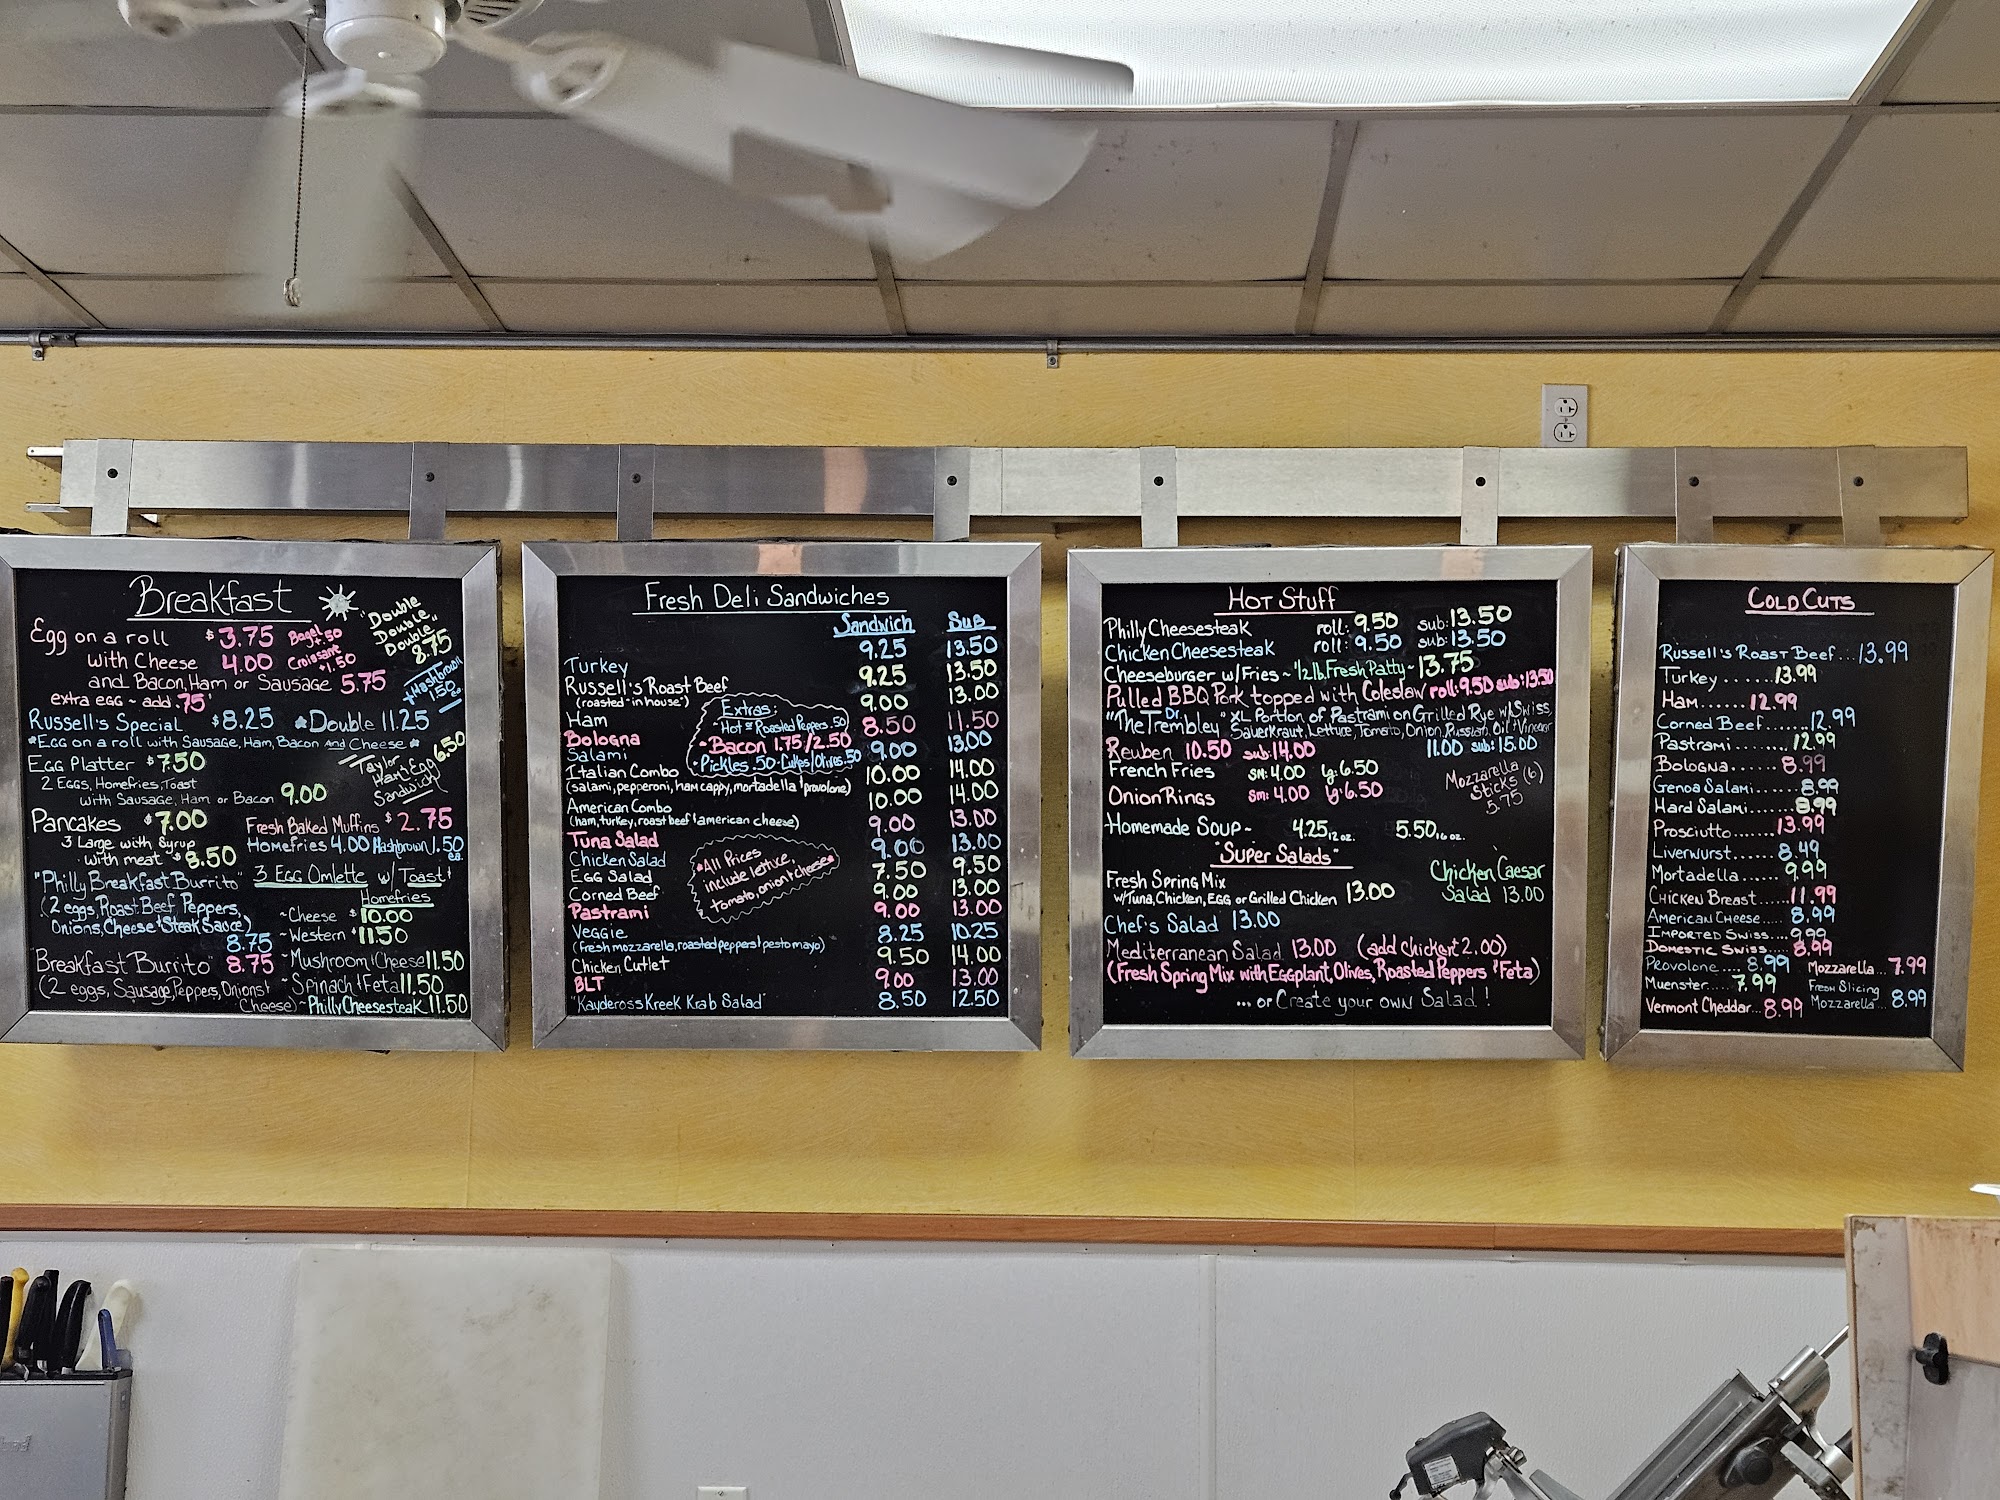 Breakfast
"Double
Double
Double"
8.75
Egg on a roll $3.75
Bagel +.50
with Cheese 4.00
Croissant +1.50
and Bacon, Ham or Sausage 5.75
extra egg ~ add .75
+Hashbrown 1.50 ea.
Russell's Special $8.25 *Double 11.25
*Egg on a roll with Sausage, Ham, Bacon And Cheese*
Egg Platter $7.50
Taylor Ham & Egg Sandwich 6.50
2 Eggs, Homefries, Toast
with Sausage, Ham or Bacon 9.00
Pancakes $7.00
3 Large with Syrup
with meat ~ $8.50
Fresh Baked Muffins $2.75
Homefries 4.00 Hashbrown 1.50 ea.
"Philly Breakfast Burrito"
(2 eggs, Roast Beef, Peppers,
Onions, Cheese & Steak Sauce)
8.75
Breakfast Burrito" 8.75
(2 eggs, Sausage, Peppers, Onions &
Cheese)
3 Egg Omlette w/ Toast &
Homefries
~Cheese $10.00
~Western $11.50
~Mushroom & Cheese 11.50
~Spinach & Feta 11.50
~Philly Cheesesteak 11.50
Fresh Deli Sandwiches
Sandwich Sub
Turkey 9.25 13.50
Russell's Roast Beef 9.25 13.50
(roasted "in house")
Ham 9.00 13.00
Bologna 8.50 11.50
Salami 9.00 13.00
Italian Combo 10.00 14.00
(salami, pepperoni, ham cappy, mortadella & provolone)
American Combo 10.00 14.00
(ham, turkey, roast beef & american cheese)
Tuna Salad 9.00 13.00
Chicken Salad 9.00 13.00
Egg Salad 7.50 9.50
Corned Beef 9.00 13.00
Pastrami 9.00 13.00
Veggie 8.25 10.25
(fresh mozzarella, roasted peppers & pesto mayo)
Chicken Cutlet 9.50 14.00
BLT 9.00 13.00
"Kaydeross Kreek Krab Salad" 8.50 12.50
Extras:
Hot or Roasted Peppers .50
~Bacon 1.75/2.50
•Pickles .50 - Cukes/Olives .50
*All Prices
include lettuce,
tomato, onion & cheese*
Hot Stuff
Philly Cheesesteak roll: 9.50 sub: 13.50
Chicken Cheesesteak roll: 9.50 sub: 13.50
Cheeseburger w/Fries ~ 1/2 lb. Fresh Patty ~ 13.75
Pulled BBQ Pork topped with Coleslaw roll: 9.50 sub: 13.50
"The Dr. Trembley" XL Portion of Pastrami on Grilled Rye w/ Swiss,
Sauerkraut, Lettuce, Tomato, Onion, Russian, Oil & Vinegar
11.00 sub: 15.00
Reuben 10.50 sub: 14.00
French Fries sm: 4.00 lg: 6.50
Onion Rings sm: 4.00 lg: 6.50
Mozzarella
Sticks (6)
5.75
Homemade Soup ~ 4.25 12 oz. 5.50 16 oz.
"Super Salads"
Fresh Spring Mix
w/Tuna, Chicken, Egg or Grilled Chicken 13.00
Chicken Caesar
Salad 13.00
Chef's Salad 13.00
Mediterranean Salad 13.00 (add chicken + 2.00)
(Fresh Spring Mix with Eggplant, Olives, Roasted Peppers & Feta)
... or Create your own Salad!
Cold Cuts
Russell's Roast Beef...13.99
Turkey......13.99
Ham......12.99
Corned Beef......12.99
Pastrami.......12.99
Bologna......8.99
Genoa Salami.....8.99
Hard Salami.....8.99
Prosciutto.......13.99
Liverwurst......8.49
Mortadella.....9.99
Chicken Breast....11.99
American Cheese....8.99
Imported Swiss....9.99
Domestic Swiss....8.99
Provolone....8.99
Muenster....7.99
Vermont Cheddar...8.99
Mozzarella...7.99
Fresh Slicing
Mozzarella...8.99